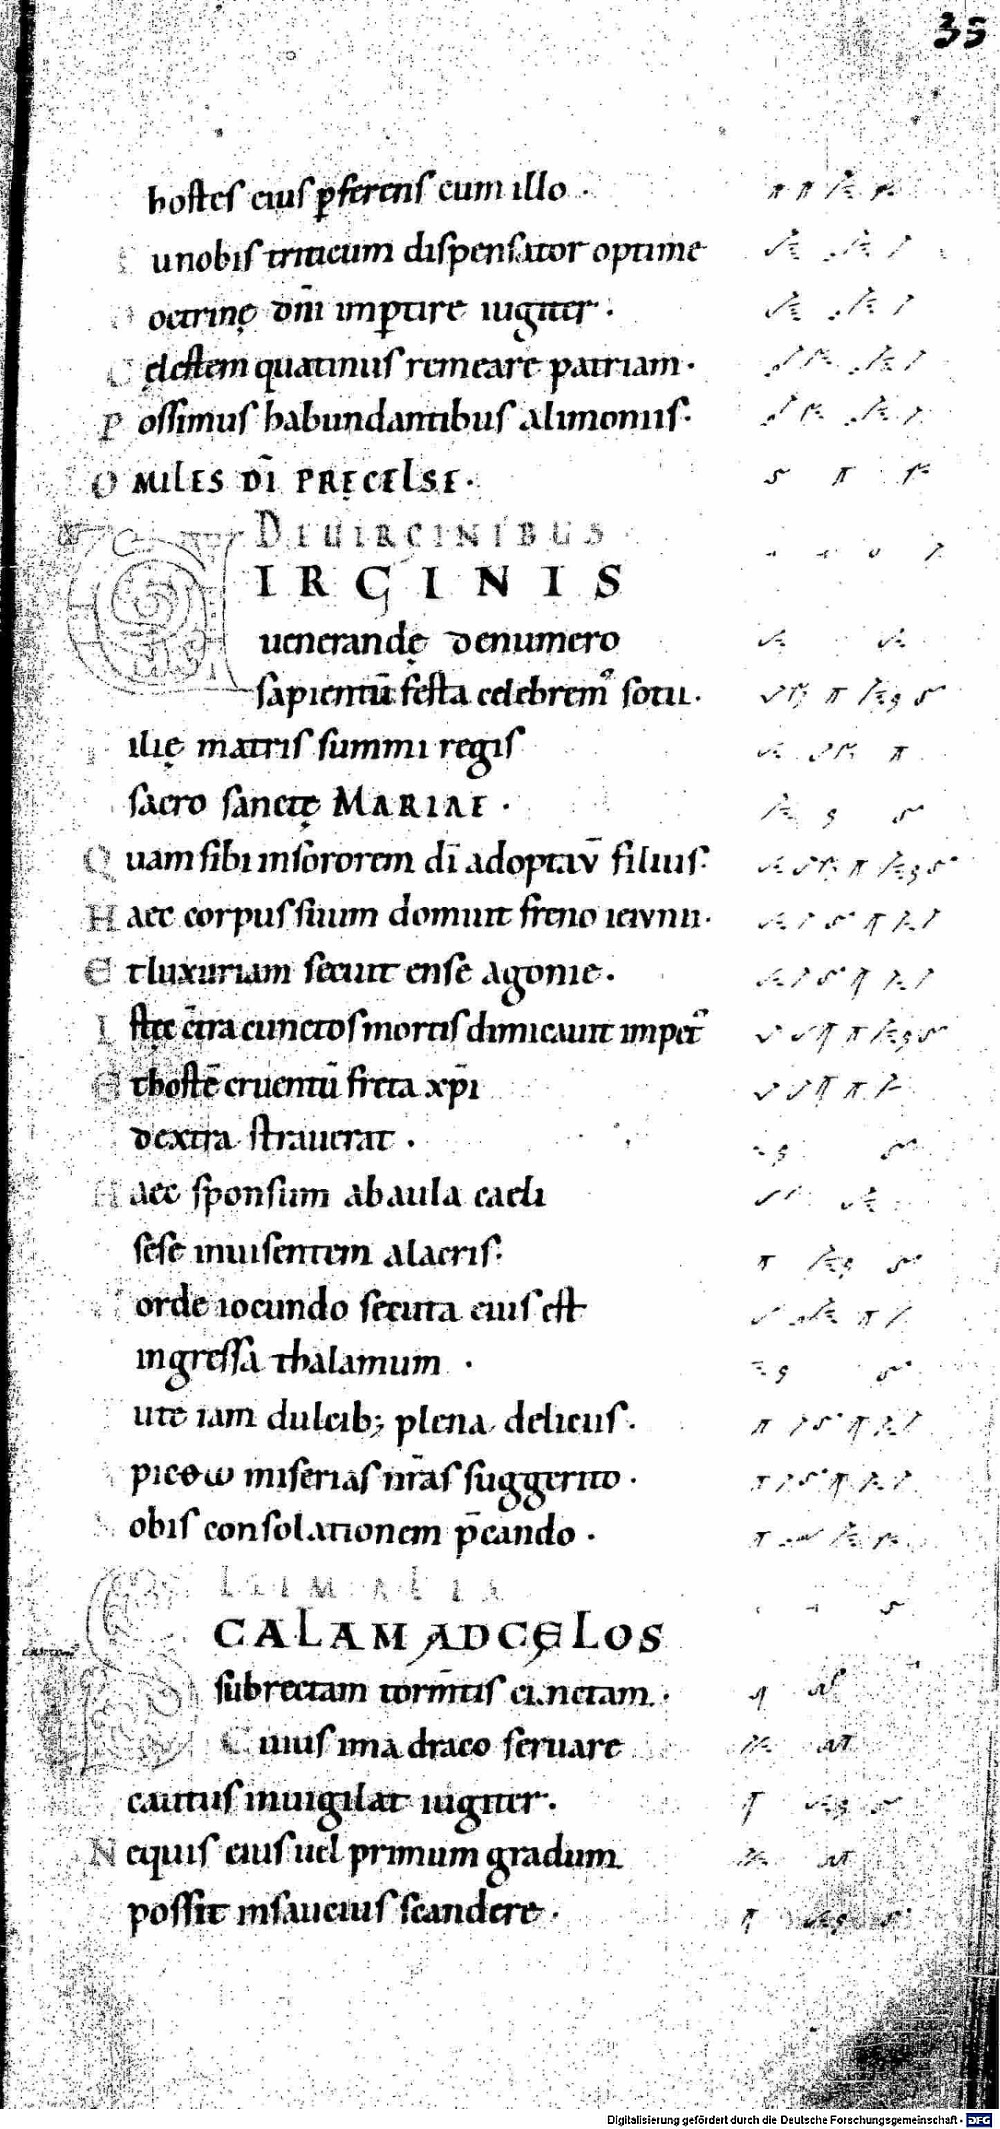 35
hostes eius p̲ferens cum illo ·
unobis triticum dispensator optime
octrinę dn̄i imp̲tire iugiter ·
C ęlestem quatinus remeare patriam ·
P ossimus habundantibus alimoniis ·
O MILES DĪ PRĘCELSE ·
DE UIRGINIBUS
IRGINIS
uenerandę denumero
sapientū festa celebrem᾿ socii ·
ilię matris summi regis
sacro sanctę MARIAE ·
Q uam sibi insororem dī adoptav̄ filius ·
H aec corpus suum domuit freno ieiunii ·
E t luxuriam secuit ense agonie ·
I stęc c̄tra cunctos mortis dimicauit impet᾿
E t hostē cruentū freta xp̄i
dextra strauerat ·
H aec sponsum ab aula caeli
sese inuisentem alacris ·
orde iocundo secuta eius est
ingressa thalamum ·
ute iam dulcib; plena deliciis ·
piceω miserias nr̄as suggerito ·
obis consolationem p̄cando ·
CALAM AD CĘLOS
subrectam torm̄tis cinctam ·
C uius ima draco seruare
cautus inuigilat iugiter ·
N equis eius uel primum gradum
possit insaucius scandere ·
Digitalisierung gefördert durch die Deutsche Forschungsgemeinschaft · DFG